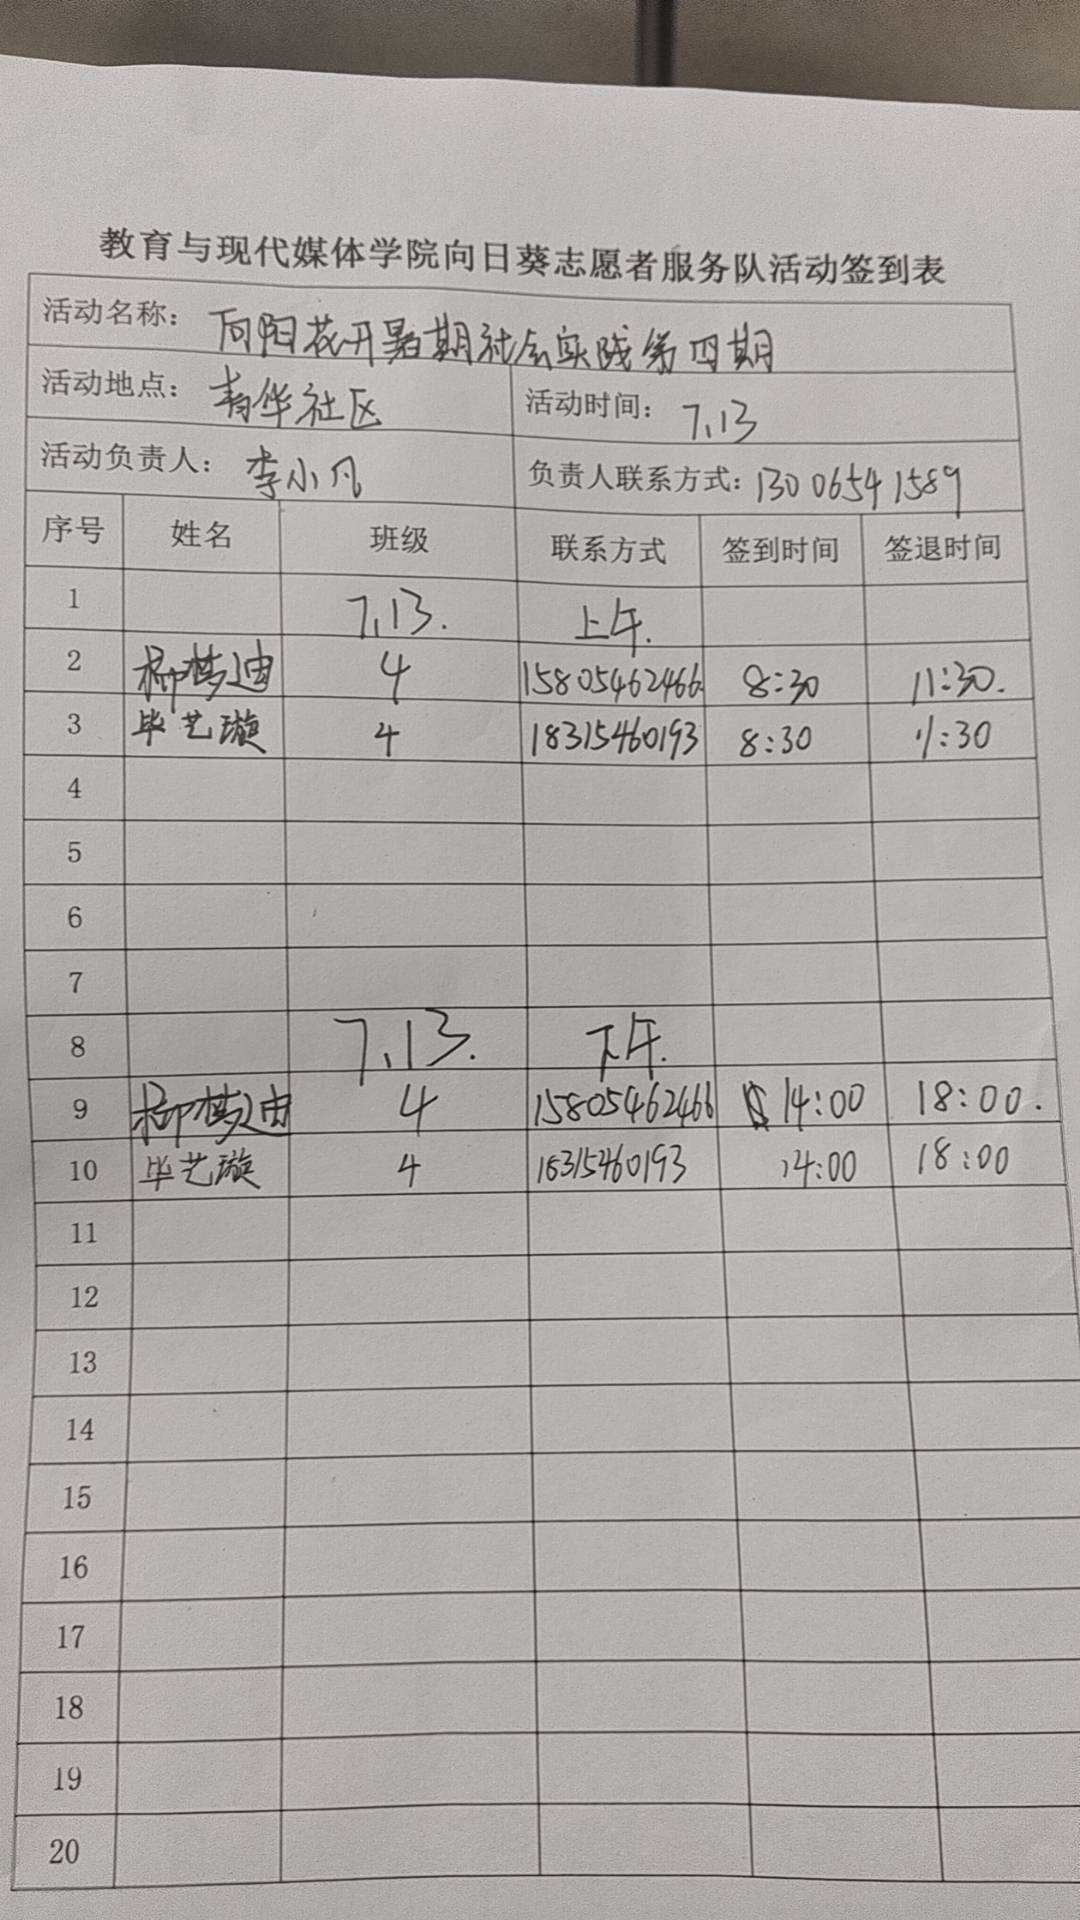 教育与现代媒体学院向日葵志愿者服务队活动签到表
活动名称： 向阳花开暑期社会实践第四期
活动地点： 青华社区 活动时间： 7.13
活动负责人： 李小凡 负责人联系方式：13006541589
序号 姓名 班级 联系方式 签到时间 签退时间
1 7.13. 上午.
2 柳梦迪 4 15805462466 8:30 11:30.
3 毕艺璇 4 18315460193 8:30 11:30
4
5
6
7
8 7.13. 下午.
9 柳梦迪 4 15805462466 14:00 18:00.
10 毕艺璇 4 18315460193 14:00 18:00
11
12
13
14
15
16
17
18
19
20